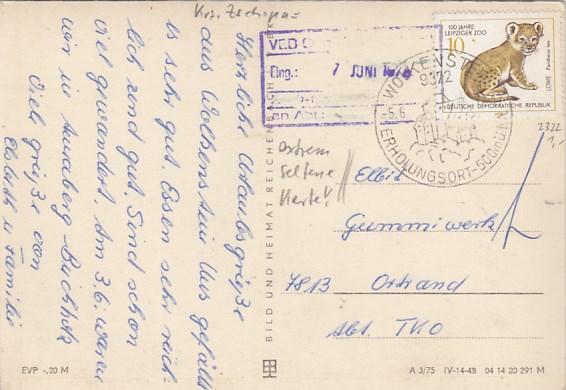 Krz. Zschopau
Herzliche Urlaubsgrüße
aus Wolkenstein. Uns gefällt
es sehr gut. Essen sehr reich-
lich und gut. Sind schon
viel gewandert. Am 3.6. waren
wir in Annaberg-Buchholz
Viel Grüße von
Elsbeth u Familie
VEB
Eing.: 7 JUNI
an Abt.:
WOLKENSTEIN
9372
-5.6
ERHOLUNGSORT-500m
100 JAHRE
LEIPZIGER ZOO
10
LÖWE Panthera leo
DEUTSCHE DEMOKRATISCHE REPUBLIK
2322
1,-
Ostrem
Seltene
Karte!
Elbit
Gummiwerk
7813 Ortrand
Abt. TKO
BILD UND HEIMAT REICHENBACH
EVP -,20 M
A 3/75 IV-14-48 04 14 20 291 M